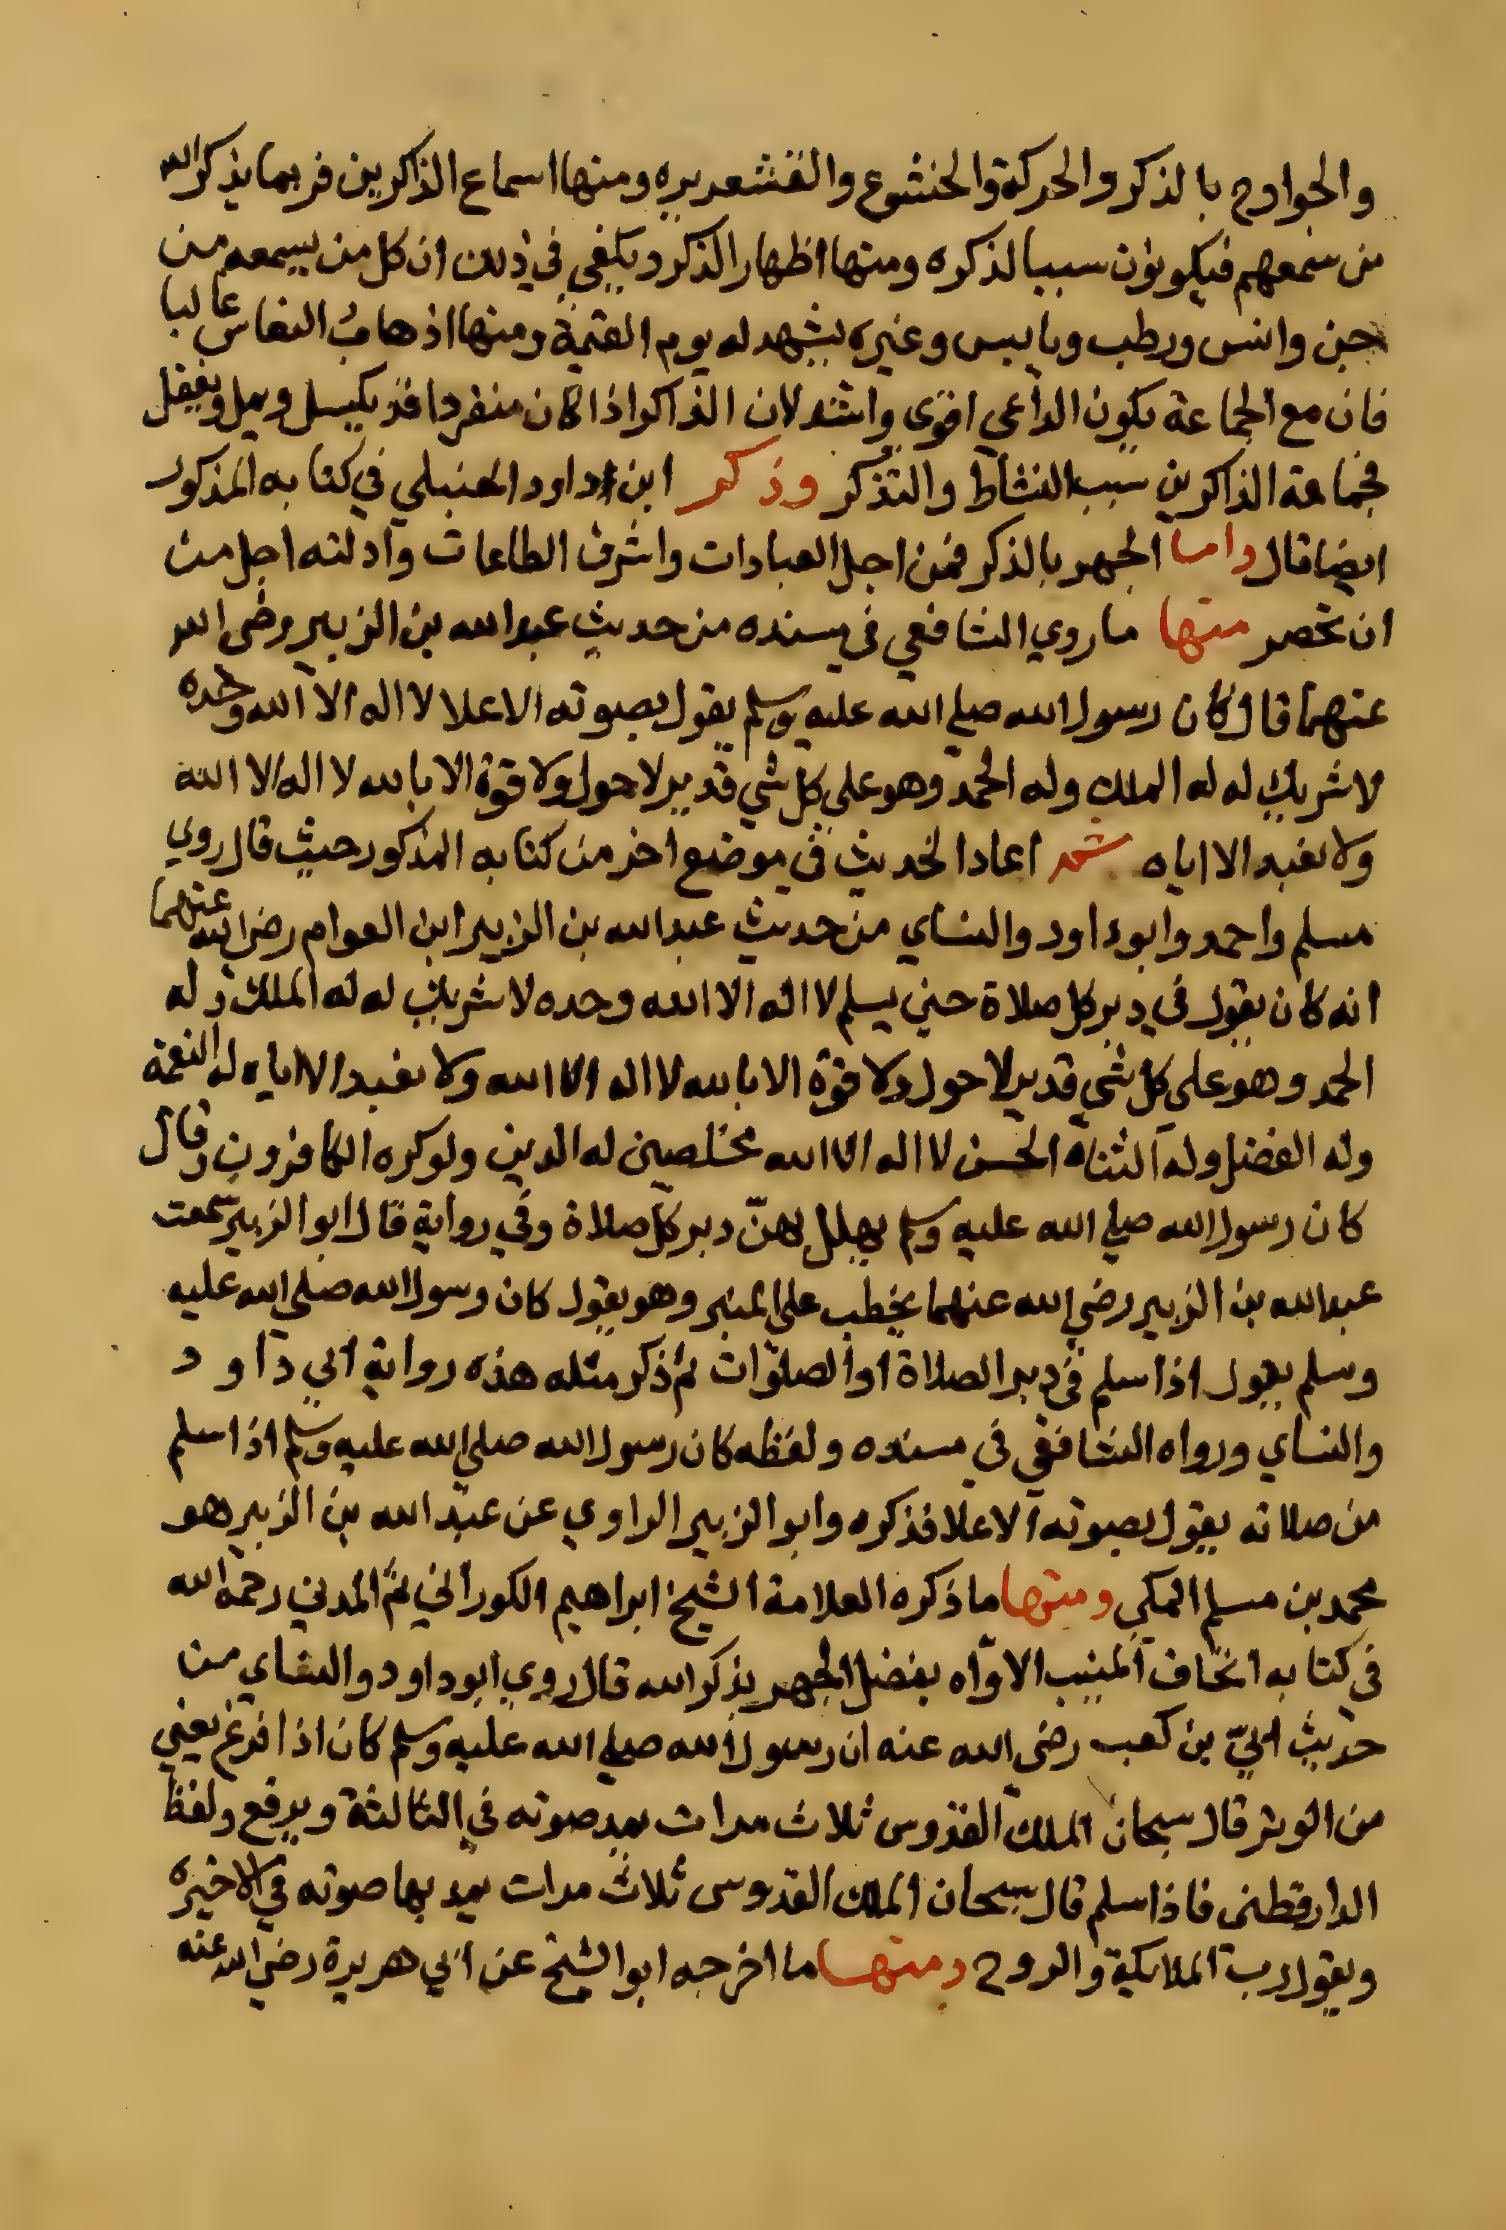 والجوارح بالذكر والحركة والخشوع والقشعريره ومنها اسماع الذاكرين فربما يذكر الله
من سمعهم فيكونون سببا لذكره ومنها اظهار الذكر ويكفي في ذلك ان كل من يسمعه من
جن وانس ورطب ويابس وغيره يشهد له يوم القيمة ومنها اذهابُ النعاس غالبا
فان مع الجماعة يكون الداعي اقوى واشد لان الذاكر اذا كان منفردا قد يكسل ويمل ويغفل
فجماعة الذاكرين سبب النشاط والتذكر وذكر ابن داود الحنبلي في كتابه المذكور
ايضا قال واما الجهر بالذكر فمن اجل العبادات واشرف الطاعات وادلته اجل من
ان تحصر منها ما روي الشافعي في مسنده من حديث عبد الله بن الزبير رضى الله
عنهما قال كان رسول الله صلي الله عليه وسلم يقول بصوته الاعلا لا اله الا الله وحده
لا شريك له له الملك وله الحمد وهو على كل شي قدير لا حول ولا قوة الا بالله لا اله الا الله
ولا نعبد الا اياه ثم اعاد الحديث في موضع اخر من كتابه المذكور حيث قال روي
مسلم واحمد وابو داود والنساي من حديث عبد الله بن الزبير ابن العوام رضي الله عنهما
انه كان يقول في دبر كل صلاة حين يسلم لا اله الا الله وحده لا شريك له له الملك وله
الحمد وهو على كل شي قدير لا حول ولا قوة الا بالله لا اله الا الله ولا نعبد الا اياه له النعمة
وله الفضل وله الثناء الحسن لا اله الا الله مخلصين له الدين ولو كره الكافرون وقال
كان رسول الله صلي الله عليه وسلم يهلل بهنّ دبر كل صلاة وفي رواية قال ابو الزبير سمعت
عبد الله بن الزبير رضي الله عنهما يخطب على المنبر وهو يقول كان رسول الله صلى الله عليه
وسلم يقول اذا سلم في دبر الصلاة او الصلوات ثم ذكر مثله هذه رواية ابي داود
والنساي ورواه الشافعي في مسنده ولفظه كان رسول الله صلي الله عليه وسلم اذا سلم
من صلاته يقول بصوته الاعلا فذكره وابو الزبير الراوي عن عبد الله بن الزبير هو
محمد بن مسلم المكي ومنها ما ذكره العلامة الشيخ ابراهيم الكوراني ثم المدني رحمه الله
في كتابه اتحاف المنيب الاواه بفضل الجهر بذكر الله قال روي ابو داود والنساي من
حديث ابيّ بن كعب رضى الله عنه ان رسول الله صلي الله عليه وسلم كان اذا فرغ يعني
من الوتر قال سبحان الملك القدوس ثلاث مرات يمد صوته في الثالثة ويرفع ولفظ
الدارقطنى فاذا سلم قال سبحان الملك القدوس ثلاث مرات يمد بها صوته في الاخيره
ويقول رب الملايكة والروح ومنها ما اخرجه ابو الشيخ عن ابي هريرة رضي الله عنه